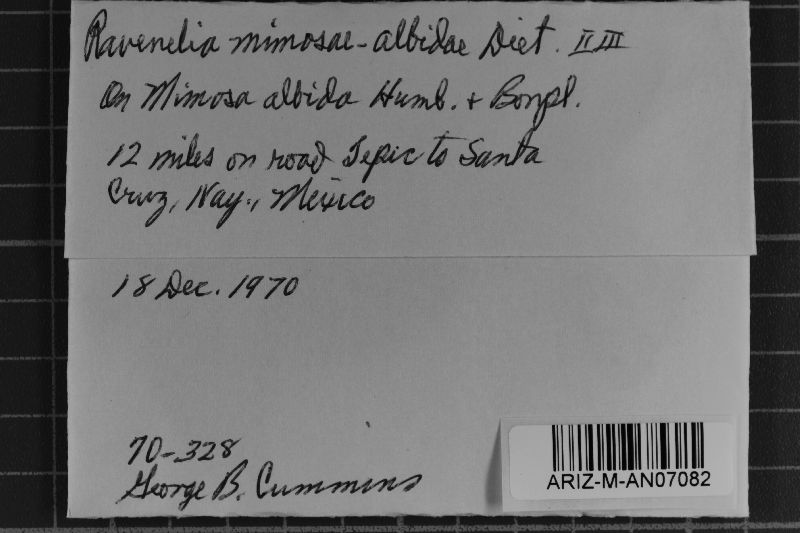 Ravenelia mimosae-albidae Diet. II III
On Mimosa albida Humb. & Bonpl.
12 miles on road Tepic to Santa
Cruz, Nay., Mexico
18 Dec. 1970
70-328
George B. Cummins
ARIZ-M-AN07082